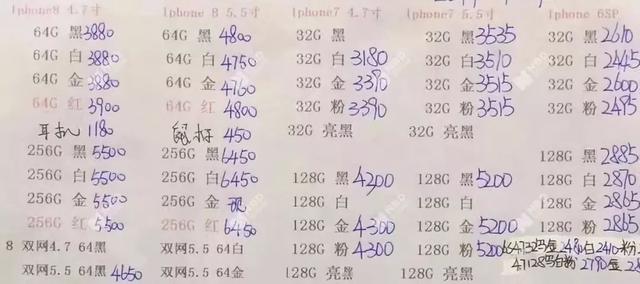 Iphone8 4.7寸 Iphone 8 5.5寸 Iphone7 4.7寸 iphone7 5.5寸 Iphone 6SP
64G 黑 3880 64G 黑 4800 32G 黑 32G 黑 3535 32G 黑 2610
64G 白 3880 64G 白 4750 32G 白 3180 32G 白 3510 32G 白 2445
64G 金 3880 64G 金 4760 32G 金 3370 32G 金 3515 32G 金 2600
64G 红 3900 64G 红 4800 32G 粉 3390 32G 粉 3515 32G 粉 2485
耳机 1180 鼠标 450 32G 亮黑 32G 亮黑
256G 黑 5500 256G 黑 6450 128G 黑 2885
256G 白 5500 256G 白 6450 128G 黑 4200 128G 黑 5200 128G 白 2870
256G 金 5500 256G 金 128G 白 128G 白 128G 金 2865
256G 红 5500 256G 红 6450 128G 金 4300 128G 金 5200 128G 粉 2865
8 双网4.7 64黑 双网5.5 64白 128G 粉 4300 128G 粉 5200 金2480白2410粉
双网5.5 64黑 4650 双网5.5 64金 128G 亮黑 128G 亮黑 白粉 2790金